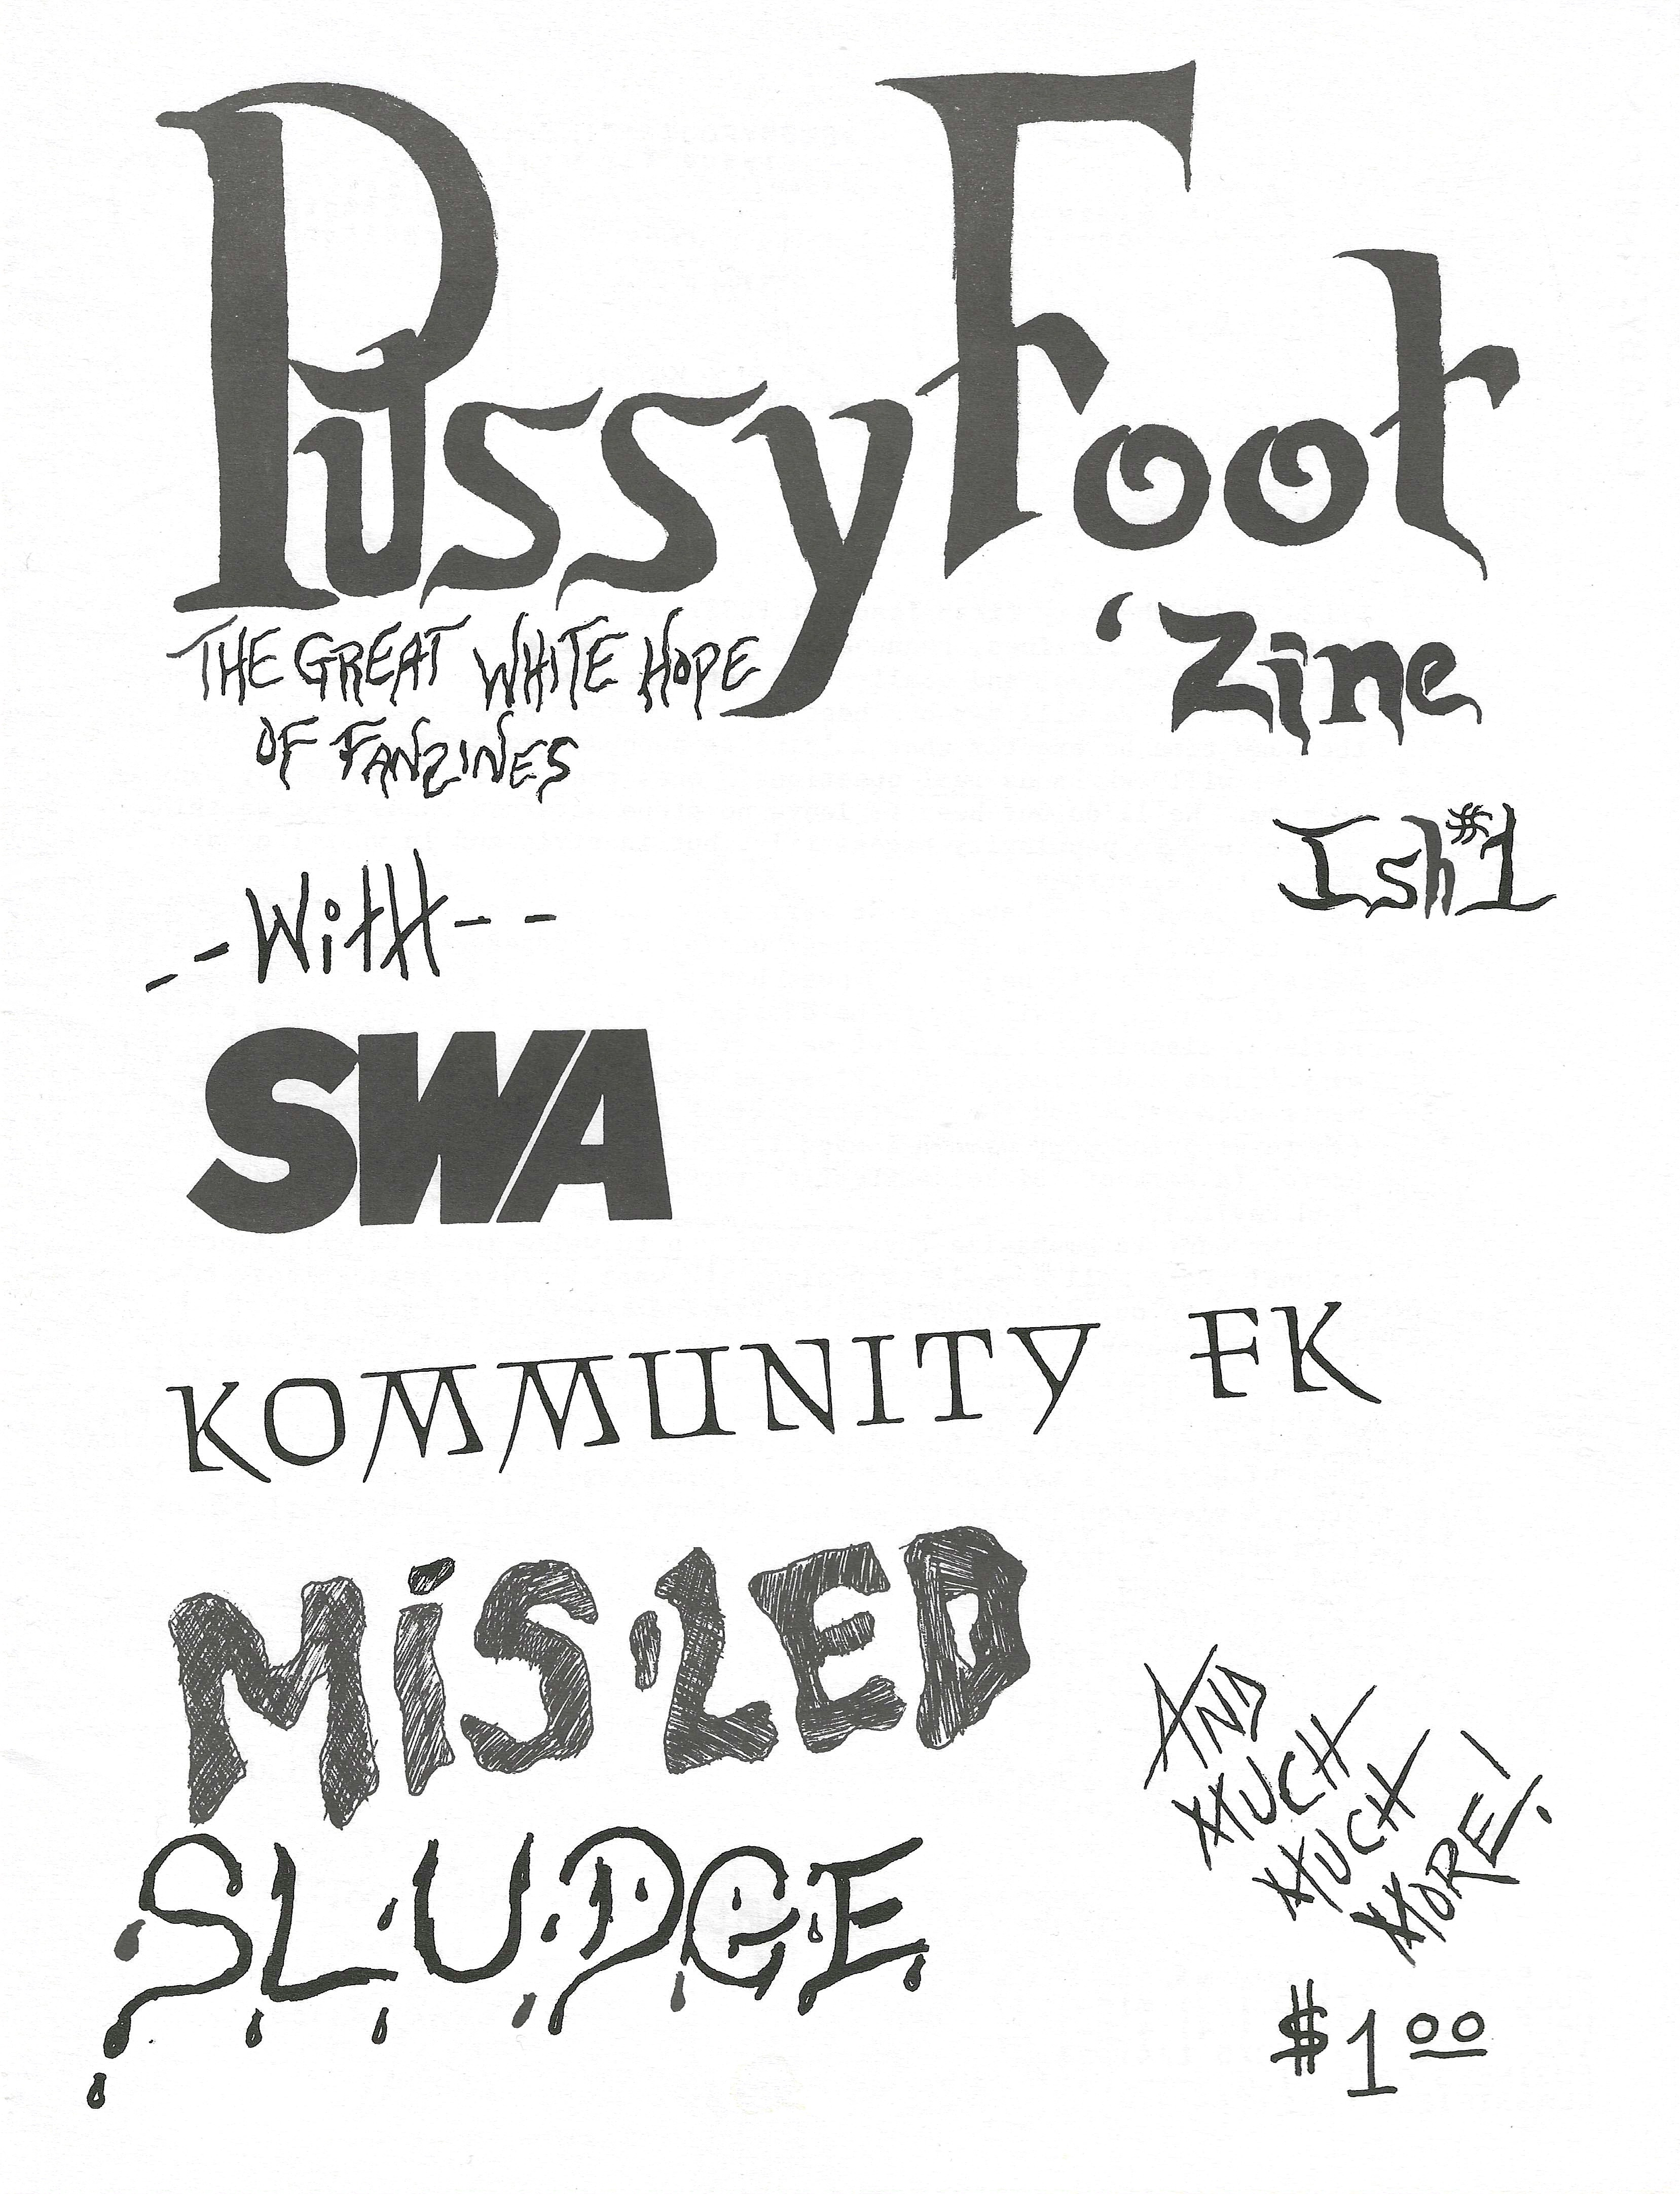 PussyFoot
'Zine
THE GREAT WHITE HOPE
OF FANZINES
Ish #1
--WitH--
SWA
KOMMUNITY FK
MiS·LED
SLUDGE
AND
MUCH
MUCH
MORE!
$1.00